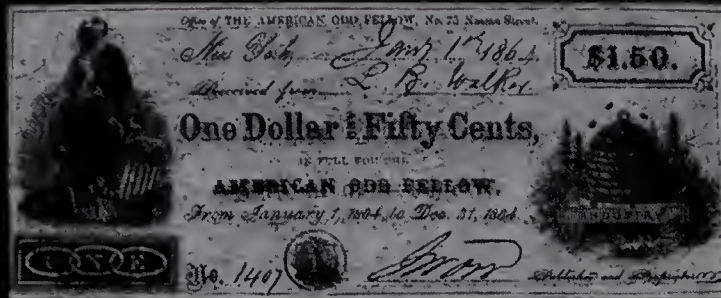 Office of THE AMERICAN ODD FELLOW, No. 75 Nassau Street,
New York, Jany 1st 1864
$1.50.
Received from L. B. Walker
One Dollar & Fifty Cents,
IN FULL FOR THE
AMERICAN ODD FELLOW,
From January 1, 1864, to Dec. 31, 1864.
INDUSTRY
ONE
No. 1407
1
Publisher and Proprietor